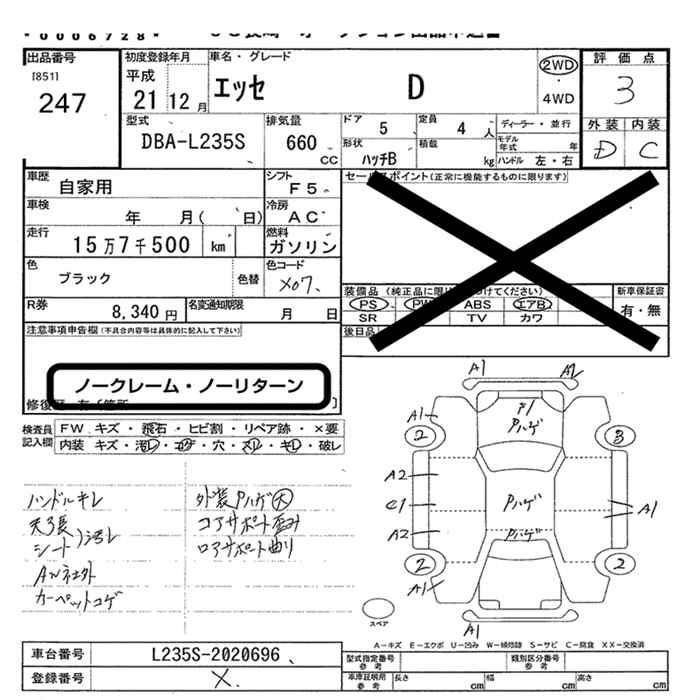 *0006728*
出品番号
[851]
247
初度登録年月
平成
21 12 月
車名・グレード
エッセ D
2WD
4WD
評価点
3
外装 内装
D C
型式
DBA-L235S
排気量
660 CC
ドア
5
定員
4 人
ディーラー・並行
モデル年式 年
形状
ハッチB
積載
kg
ハンドル 左・右
車歴
自家用
シフト
F5
セールスポイント(正常に機能するものに限ります)
車検
年 月( 日)
冷房
AC
走行
15万7千500 km
燃料
ガソリン
色
ブラック
色替
色コード
X07
装備品
PS PW ABS エアB
SR TV カワ
新車保証書
有・無
後日品
R券
8,340 円
名変通知期限
月 日
注意事項申告欄(不具合内容等は具体的に記入して下さい)
ノークレーム・ノーリターン
検査員記入欄
FW キズ・飛石・ヒビ割・リペア跡・×要
内装 キズ・汚レ・コゲ・穴・スレ・キレ・破レ
ハンドルキレ
天張
シート 汚レ
AW社外
カーペットコゲ
外装Pハゲ大
コアサポート歪み
ロアサポート曲り
A1 A2
A1
P1
Pハゲ
2 3
A2
C1 Pハゲ A1
A2 Pハゲ
2 2
A1
A1
スペア
A-キズ E-エクボ U-凹み W-補修跡 S-サビ C-腐食 XX-交換済
車台番号
L235S-2020696
登録番号
X
型式指定番号 参考
類別区分番号 参考
車庫証明用 参考
長さ cm 幅 cm 高さ cm